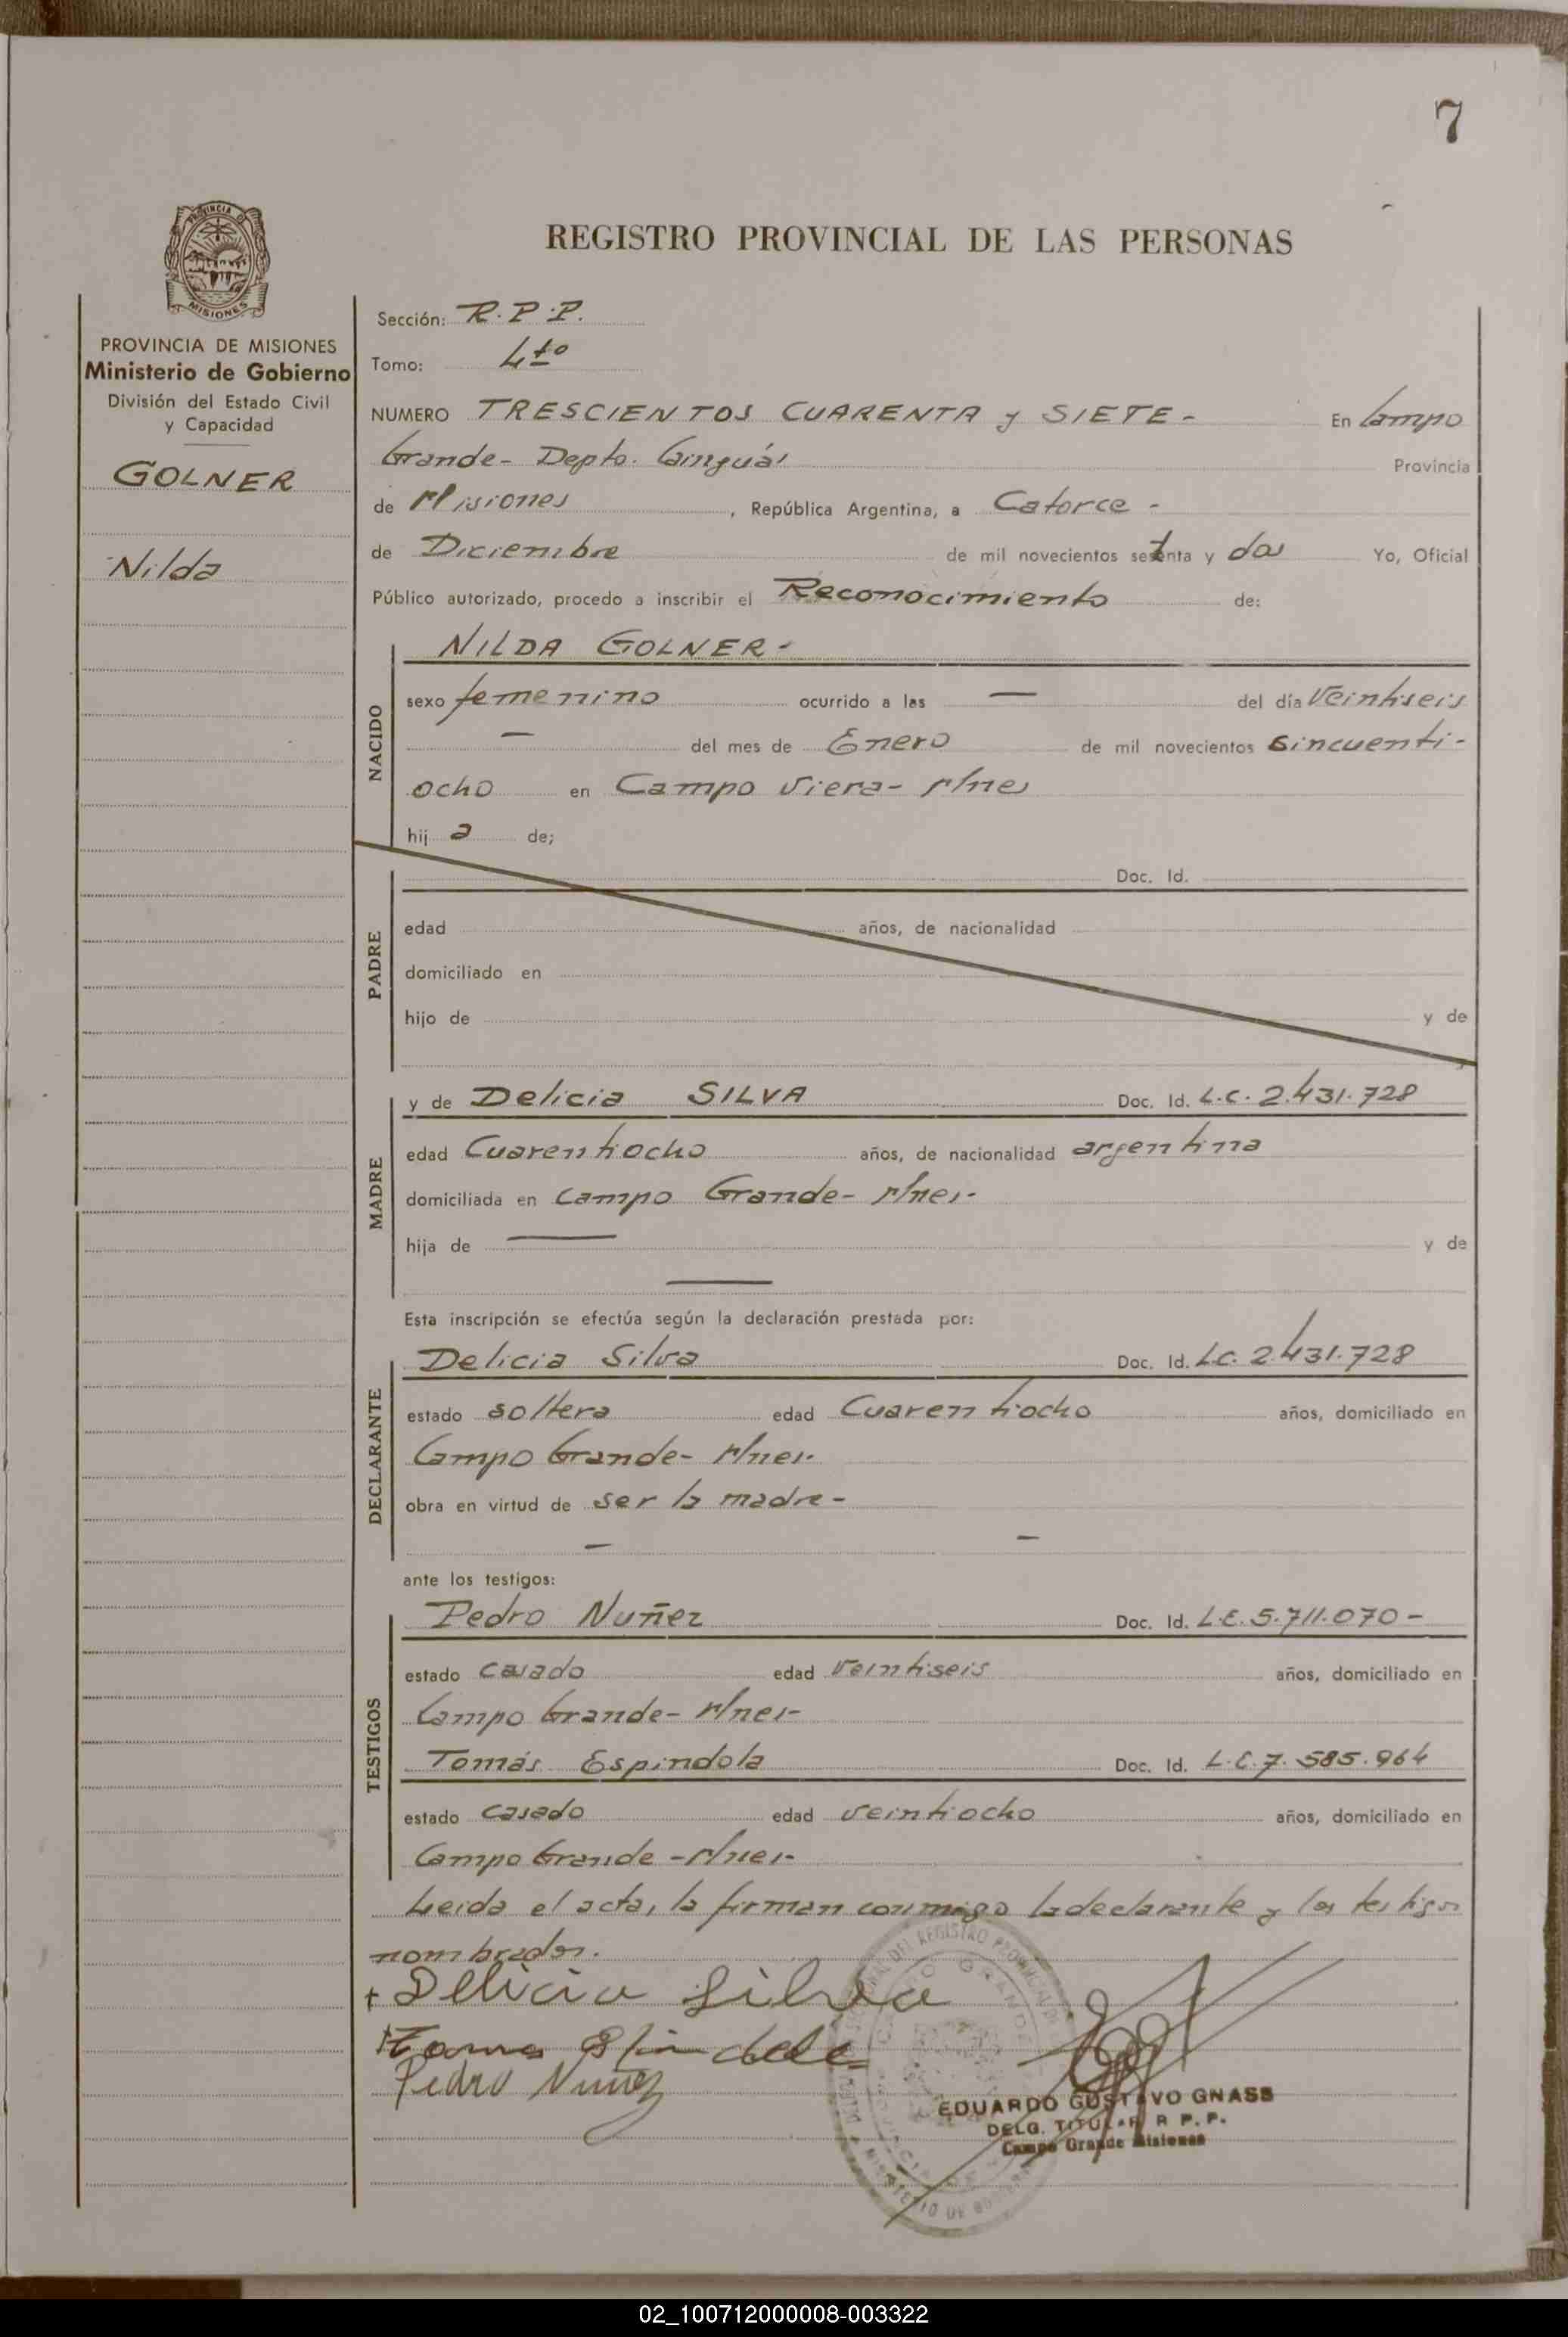 7
PROVINCIA DE
MISIONES
REGISTRO PROVINCIAL DE LAS PERSONAS
PROVINCIA DE MISIONES
Ministerio de Gobierno
División del Estado Civil
y Capacidad
GOLNER
Nilda
Sección: R.P.P.
Tomo: 4to
NUMERO TRESCIENTOS CUARENTA y SIETE - En Campo
Grande - Depto. Cainguás Provincia
de Misiones, República Argentina, a Catorce -
de Diciembre de mil novecientos setenta y dos Yo, Oficial
Público autorizado, procedo a inscribir el Reconocimiento de:
NACIDO
NILDA GOLNER -
sexo femenino ocurrido a las — del día Veintiseis
— del mes de Enero de mil novecientos Cincuenti-
ocho en Campo Viera - M/nes
hij a de;
PADRE
Doc. Id.
edad años, de nacionalidad
domiciliado en
hijo de y de
MADRE
y de Delicia SILVA Doc. Id. L.C. 2.431.728
edad Cuarentiocho años, de nacionalidad argentina
domiciliada en Campo Grande - M/nes -
hija de — y de
—
Esta inscripción se efectúa según la declaración prestada por:
DECLARANTE
Delicia Silva Doc. Id. L.C. 2.431.728
estado soltera edad Cuarentiocho años, domiciliado en
Campo Grande - M/nes -
obra en virtud de ser la madre -
— —
ante los testigos:
TESTIGOS
Pedro Nuñez Doc. Id. L.E. 5.711.070 -
estado casado edad Veintiseis años, domiciliado en
Campo Grande - M/nes -
Tomás Espindola Doc. Id. L.E. 7.585.964
estado casado edad veintiocho años, domiciliado en
Campo Grande - M/nes -
Leida el acta, la firman conmigo la declarante y los testigos
nombrados.
+ Delicia Silva
Pedro Nuñez
EDUARDO GUSTAVO GNASS
DELG. TITULAR R P. P.
Campo Grande Misiones
02_100712000008-003322